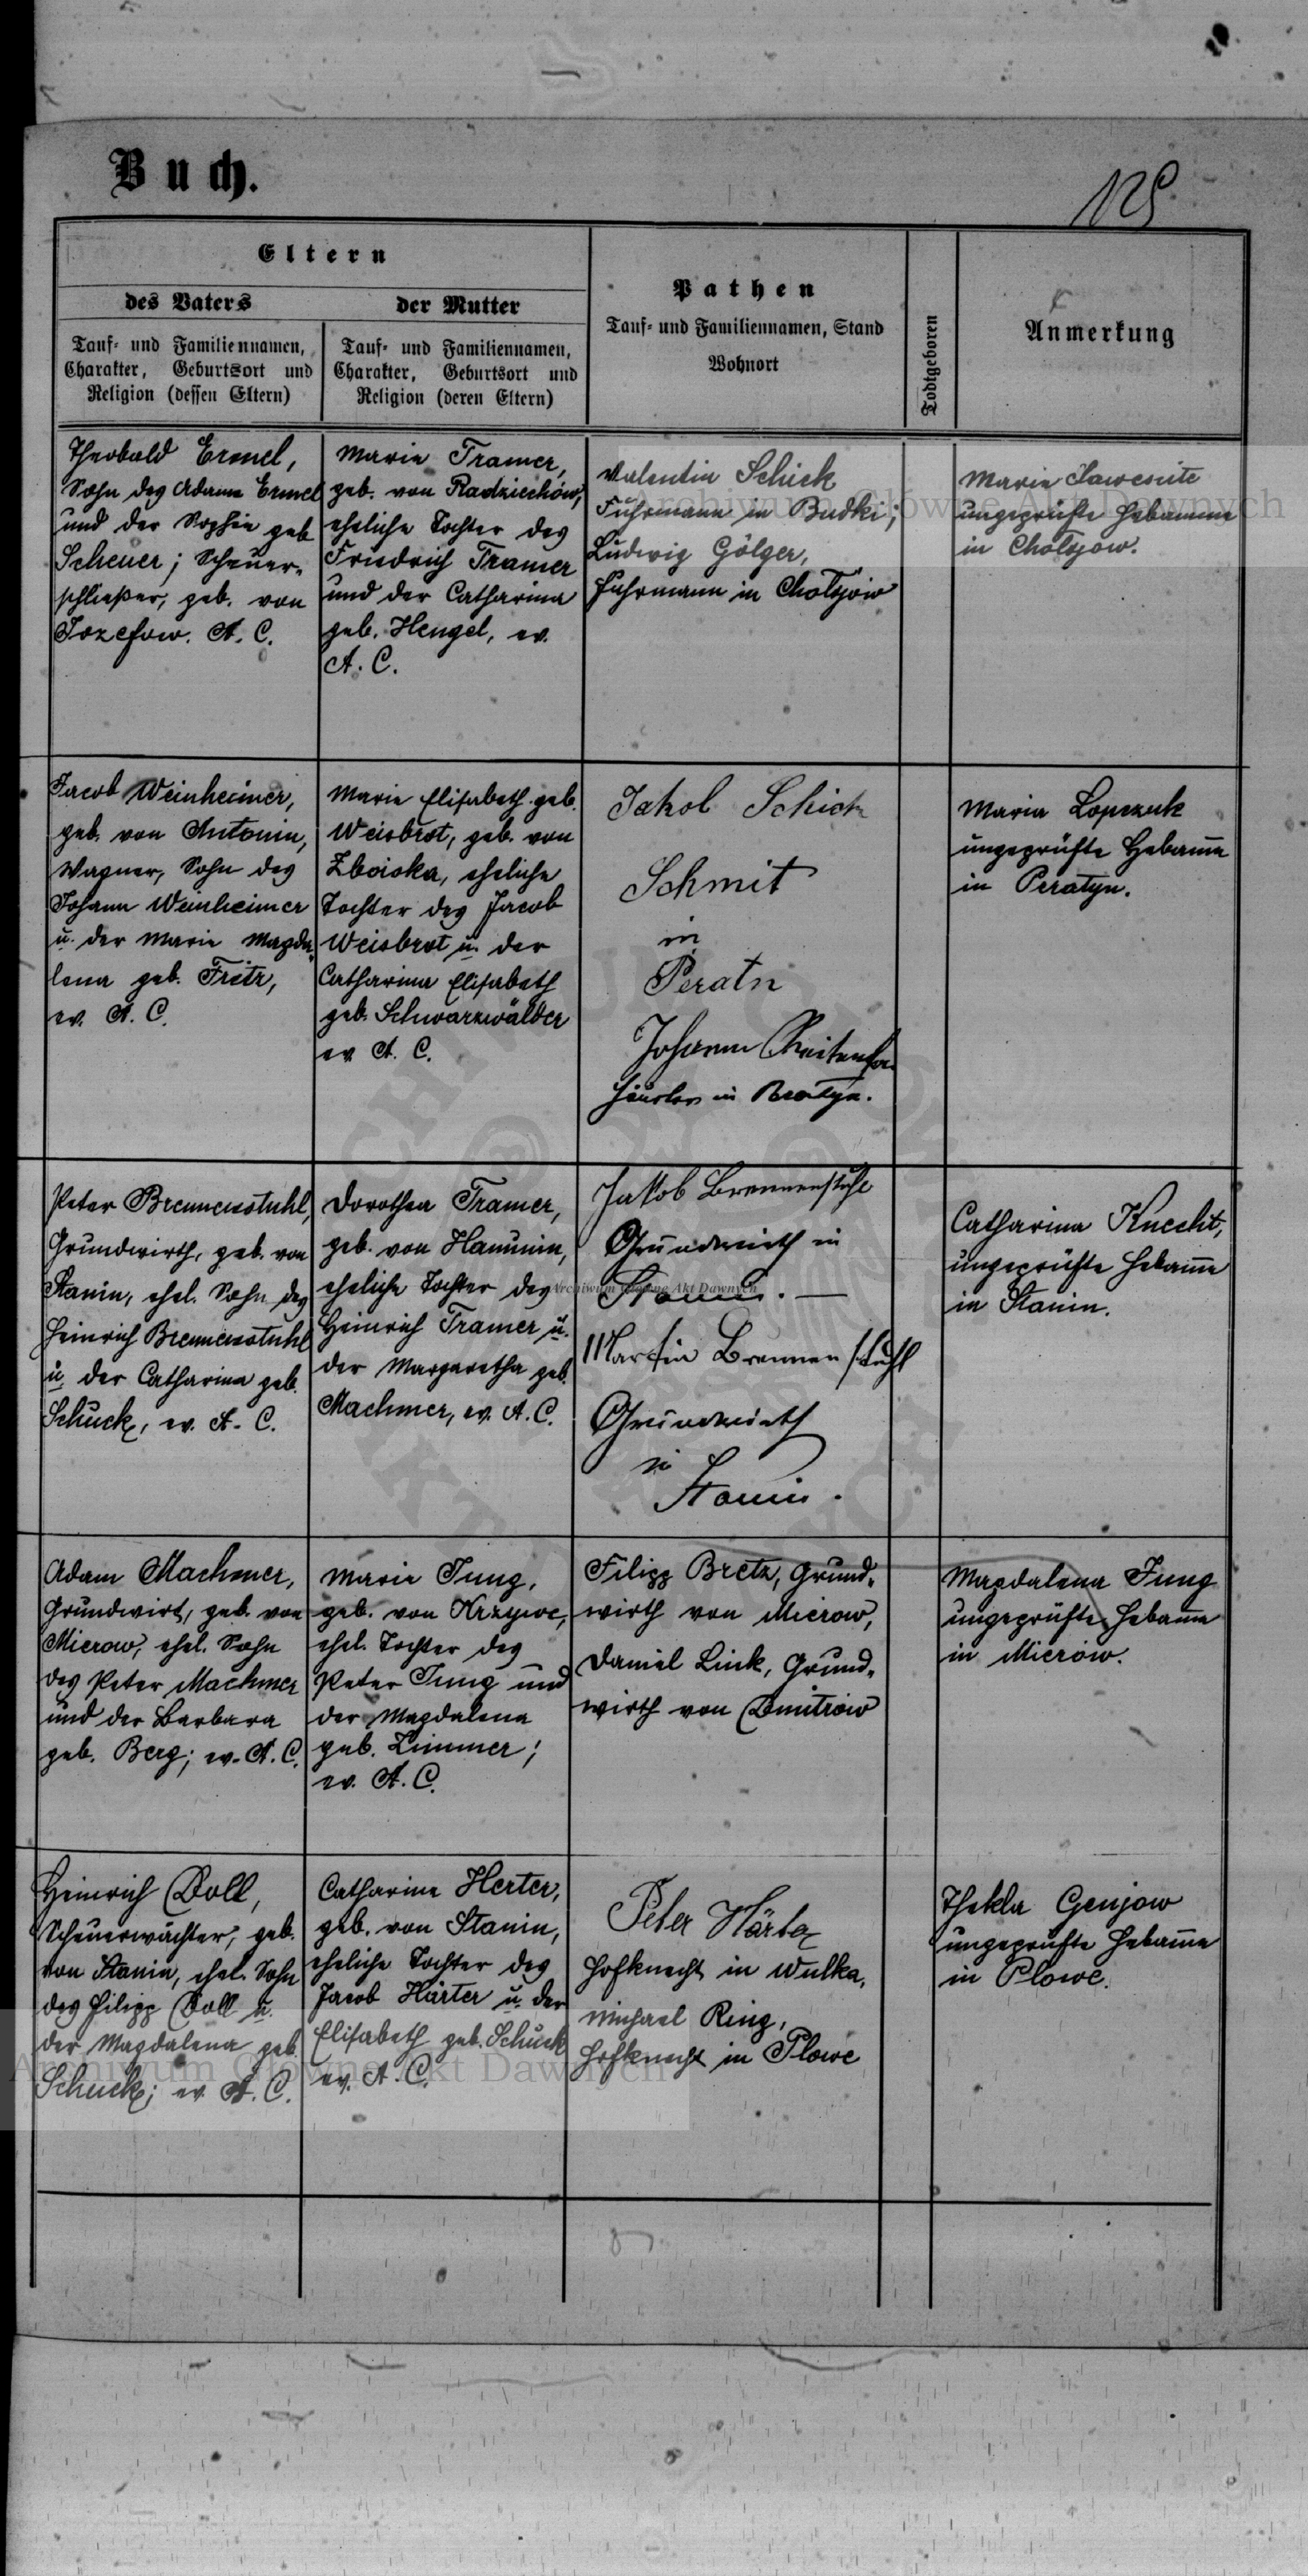 Buch.
125
Eltern
des Vaters
Tauf- und Familiennamen,
Charakter, Geburtsort und
Religion (dessen Eltern)
der Mutter
Tauf- und Familiennamen,
Charakter, Geburtsort und
Religion (deren Eltern)
Pathen
Tauf- und Familiennamen, Stand
Wohnort
Todtgeboren
Anmerkung
Theobald Ermel,
Sohn des Adam Ermel
und der Sophie geb
Scheuer; Scheuer-
schließer, geb. von
Jozefow. A. C.
Marie Tramer,
geb. von Radziechów,
eheliche Tochter des
Friedrich Tramer
und der Catharina
geb. Hengel, ev.
A. C.
Valentin Schick
Fuhrmann in Budki;
Ludwig Gölger,
Fuhrmann in Chołojów
Marie
ungeprüfte Hebamme
in Chołojow.
Jacob Weinheimer,
geb. von Antonin,
Wagner, Sohn des
Johann Weinheimer
u. der Marie Magda-
lena geb. Fritz,
ev. A. C.
Marie Elisabeth geb.
Weisbrot, geb. von
Zboiska, eheliche
Tochter des Jacob
Weisbrot u. der
Catharina Elisabeth
geb. Schwarzwälder
ev A. C.
Jakob Schick
Schmit
in
Peratn
Johann
Häusler in
Maria Lopczuk
ungeprüfte Hebame
in Peratyn.
Peter Brennenstuhl,
Grundwirth, geb. von
Stanin, ehel. Sohn des
Heinrich Brennenstuhl
u. der Catharina geb.
Schuck, ev. A. C.
Dorothea Tramer,
geb. von Hanunin,
eheliche Tochter des
Heinrich Tramer u.
der Margaretha geb.
Machmer, ev. A. C.
Jakob Brennenstuhl
Grundwirth in
Stanin. —
Martin Brennenstuhl
Grundwirth
in
Stanin.
Catharina Knecht,
ungeprüfte Hebame
in Stanin.
Adam Machmer,
Grundwirt, geb. von
Mierow, ehel. Sohn
des Peter Machmer
und der Barbara
geb. Berg; ev. A. C.
Marie Jung,
geb. von Krzywe,
ehel. Tochter des
Peter Jung und
der Magdalena
geb. Zimmer;
ev. A. C.
Filipp Bretz, Grund-
wirth von Mierow,
Daniel Link, Grund-
wirth von Dmitrów
Magdalena Jung
ungeprüfte Hebame
in Mierów.
Heinrich Doll,
Scheuerwächter, geb.
von Stanin, ehel. Sohn
des Filipp Doll u.
der Magdalena geb.
Schuck; ev. A. C.
Catharina Herter,
geb. von Stanin,
eheliche Tochter des
Jacob Härter u. der
Elisabeth geb. Schuck
ev. A. C.
Peter Härter
Hofknecht in Wulka,
Michael Ring,
Hofknecht in Płowe
Thekla Genjow
ungeprüfte Hebame
in Płowe.
Archiwum Główne Akt Dawnych
Archiwum Główne Akt Dawnych
Archiwum Główne Akt Dawnych